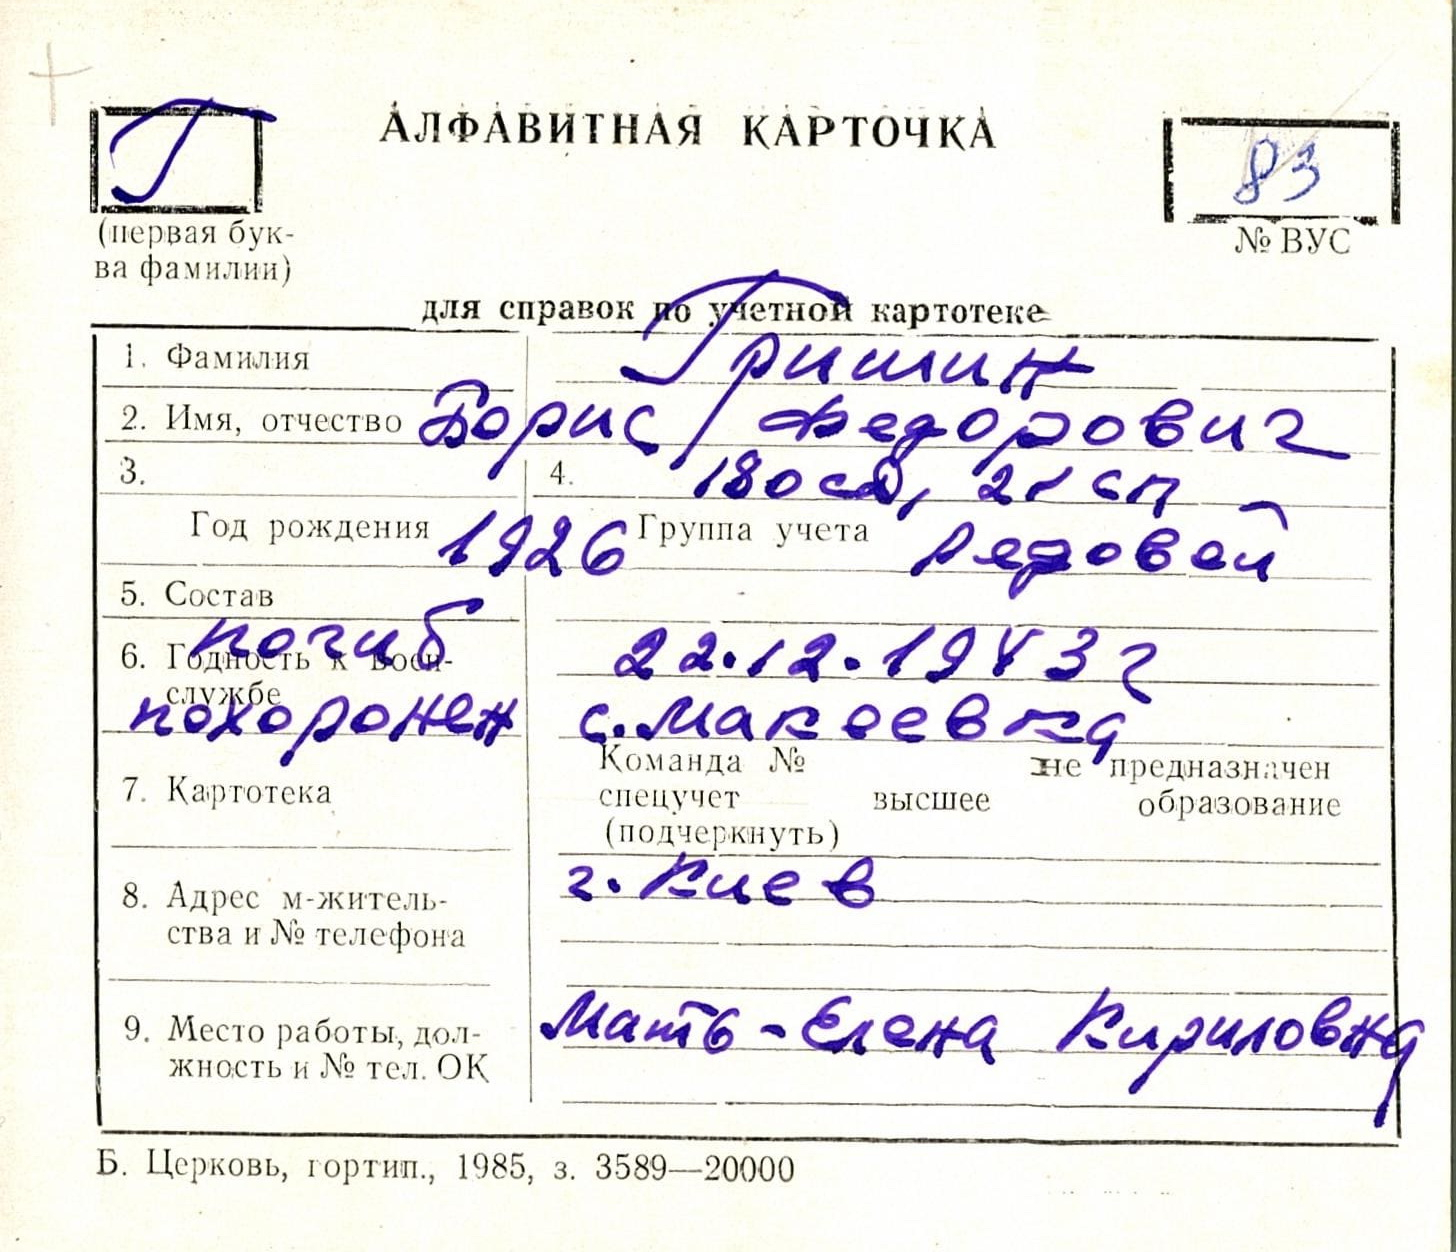 Г
АЛФАВИТНАЯ КАРТОЧКА
83
(первая бук-
ва фамилии)
№ ВУС
для справок по учетной картотеке
1. Фамилия Гришин
2. Имя, отчество Борис Федорович
3. 4. 180 сд, 21 сп
Год рождения 1926 Группа учета Рядовой
5. Состав
погиб 22.12.1943 г
6. Годность к воен-
службе
похоронен с. Макеевка
Команда № не предназначен
7. Картотека спецучет высшее образование
(подчеркнуть)
г. Киев
8. Адрес м-житель-
ства и № телефона
Мать - Елена Кириловна
9. Место работы, дол-
жность и № тел. ОК
Б. Церковь, гортип., 1985, з. 3589—20000